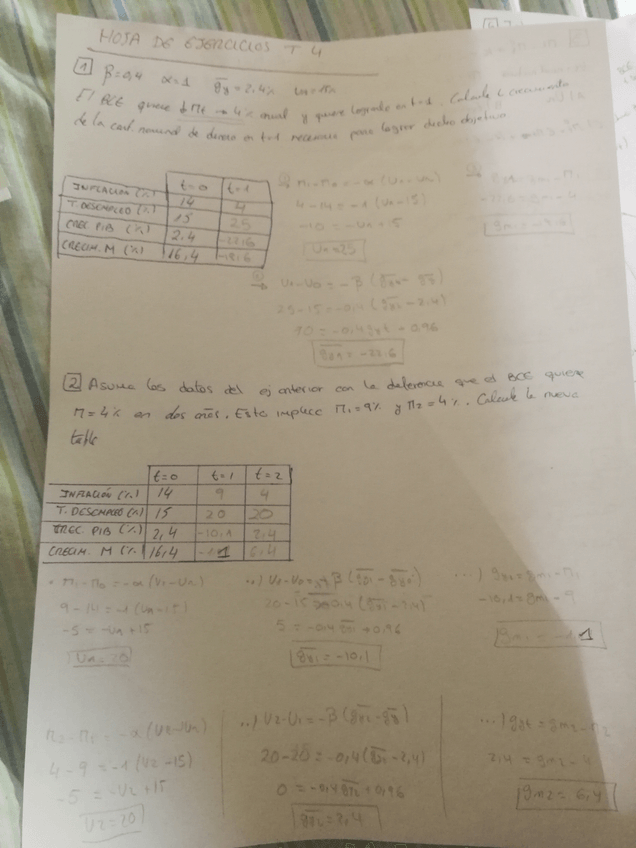 HOJA DE EJERCICIOS T4
1 β=0,4 α=1 g̅y=2,4% Un=15%
El BCE quiere ↓π1 → 4% anual y quiere lograrlo en t=1. Calcule crecimiento
de la cant. nominal de dinero en t=1 necesario para lograr dicho objetivo
t=0 t=1
INFLACIÓN (%) 14 4
T. DESEMPLEO (%) 15 25
CREC. PIB (%) 2,4 -22,6
CRECIM. M (%) 16,4 -18,6
π1-π0=-α(U1-Un)
4-14=-1(U1-15)
-10=-U1+15
U1=25
U1-U0=-β(gy1-g̅y)
25-15=-0,4(gy1-2,4)
10=-0,4gy1+0,96
gy1=-22.6
2 Asuma los datos del ej anterior con la diferencia que el BCE quiere
π=4% en dos años. Esto implica π1=9% y π2=4%. Calcule la nueva
tabla
t=0 t=1 t=2
INFLACIÓN (%) 14 9 4
T. DESEMPLEO (%) 15 20 20
CREC. PIB (%) 2,4 -10,1 2,4
CRECIM. M (%) 16,4 -1,1 6,4
· π1-π0=-α(U1-Un)
9-14=-1(U1-15)
-5=-U1+15
U1=20
··) U1-U0=-β(gy1-g̅y)
20-15=-0,4(gy1-2,4)
5=-0,4gy1+0,96
gy1=-10,1
···) gy1=gm1-π1
-10,1=gm1-9
gm1=-1,1
π2-π1=-α(U2-Un)
4-9=-1(U2-15)
-5=-U2+15
U2=20
··) U2-U1=-β(gy2-g̅y)
20-20=-0,4(gy2-2,4)
0=-0,4gy2+0,96
gy2=2,4
···) gyt=gm2-π2
2,4=gm2-4
gm2=6,4